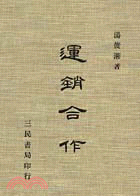 湯俊湘著
運銷合作
三民書局印行